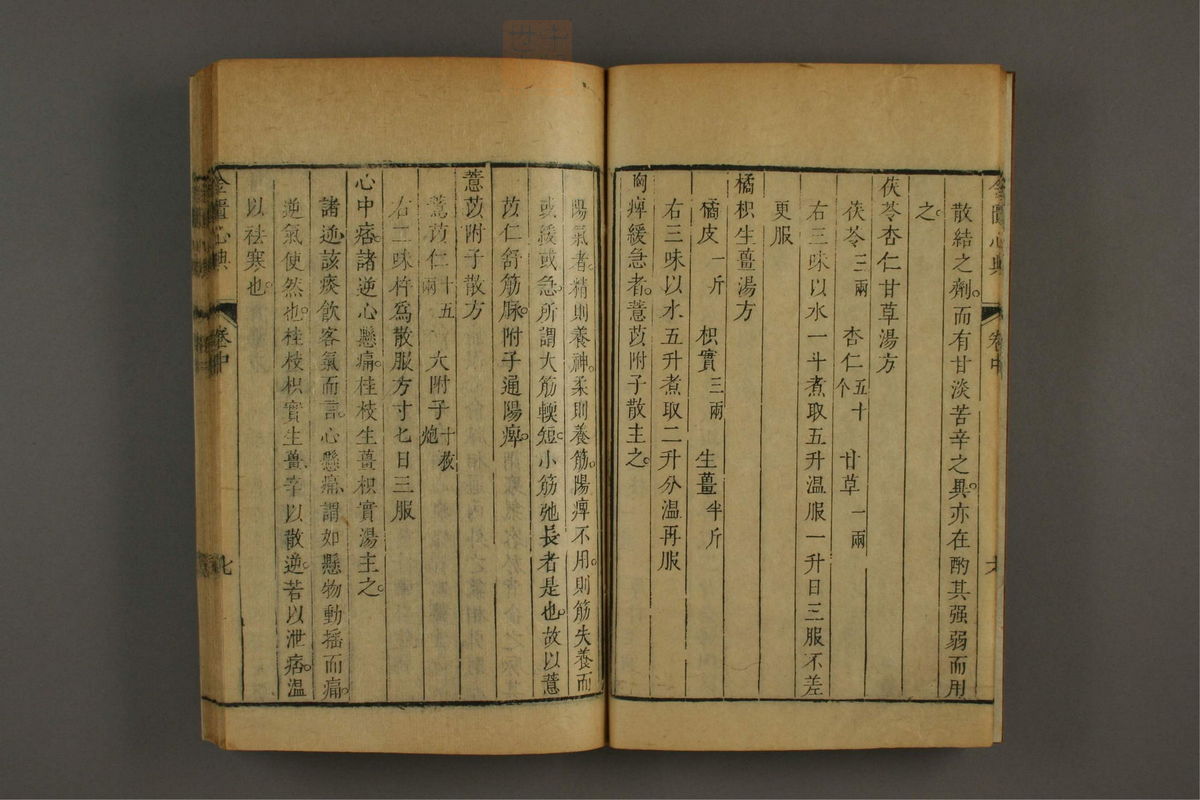 金匱心典 卷中 六
散結之劑而有甘淡苦辛之異亦在酌其强弱而用
之
茯苓杏仁甘草湯方
茯苓三兩 杏仁五十个 甘草一兩
右三味以水一斗煮取五升温服一升日三服不差
更服
橘枳生薑湯方
橘皮一斤 枳實三兩 生薑半斤
右三味以水五升煮取二升分温再服
胸痺緩急者薏苡附子散主之
陽氣者精則養神柔則養筋陽痺不用則筋失養而
或緩或急所謂大筋軟短小筋弛長者是也故以薏
苡仁舒筋脉附子通陽痺
薏苡附子散方
薏苡仁十五兩 大附子十枚炮
右二味杵為散服方寸匕日三服
心中痞諸逆心懸痛桂枝生薑枳實湯主之
諸逆該痰飲客氣而言心懸痛謂如懸物動搖而痛
逆氣使然也桂枝枳實生薑辛以散逆苦以泄痞温
以祛寒也
金匱心典 卷中 七